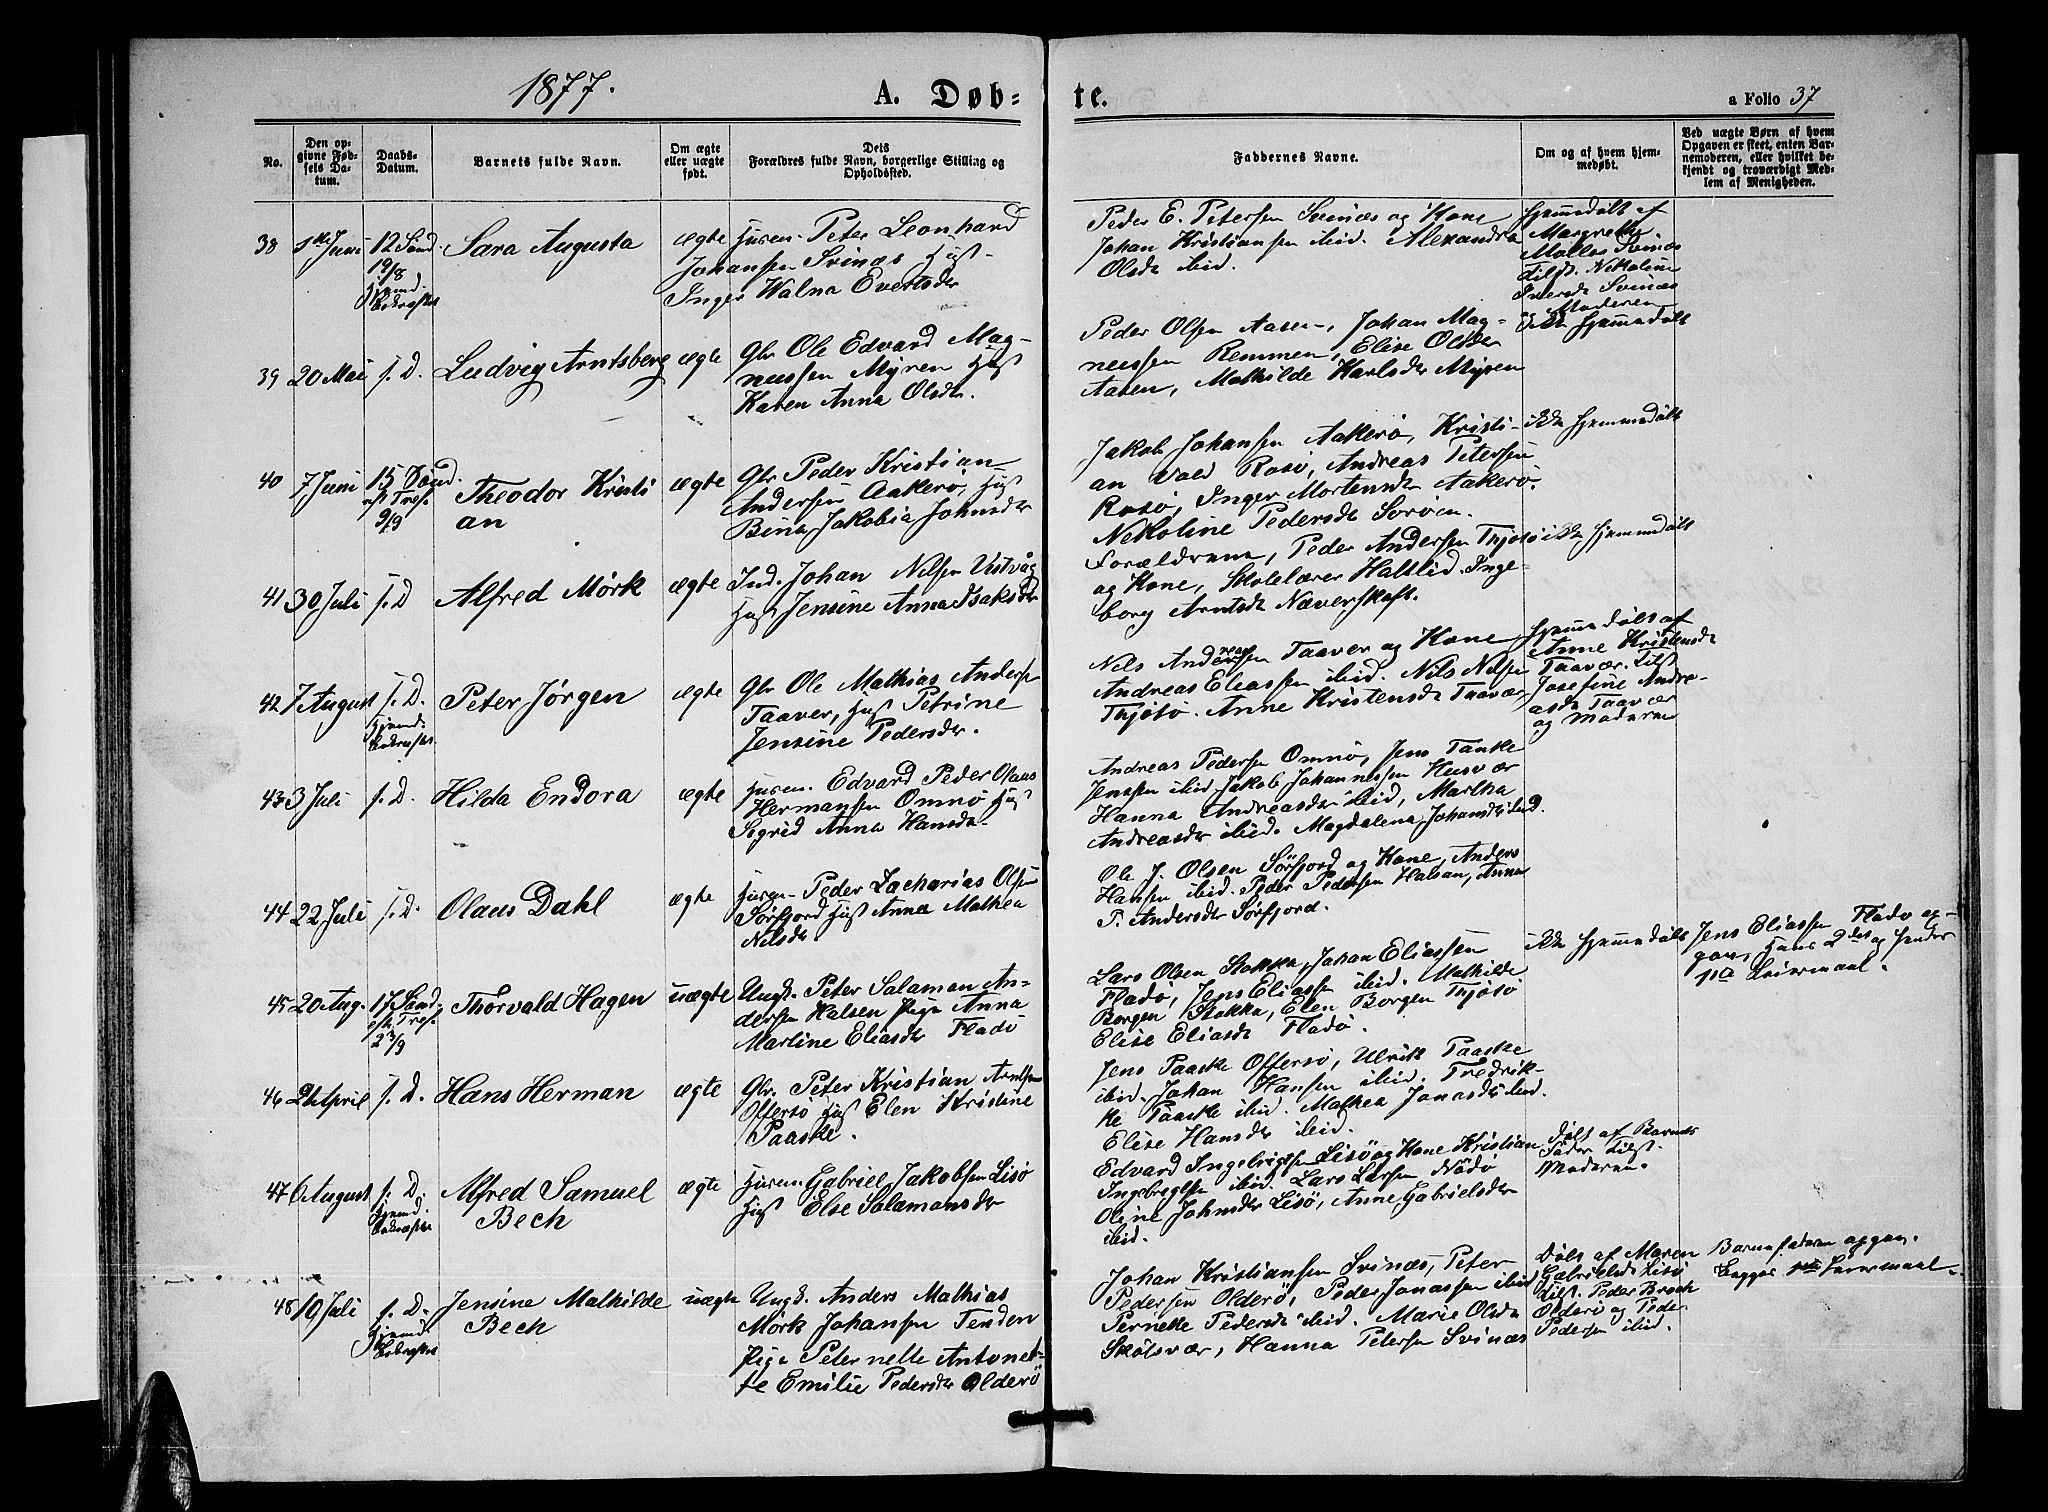 1877.
A. Døb-
te.
a Folio 37
No.
Den op-
givne Fød-
sels Da-
tum.
Daabs-
Datum.
Barnets fulde Navn.
Om ægte
eller uægte
født.
Dets
Forældres fulde Navn, borgerlige Stilling og
Opholdssted.
Faddernes Navne.
Om og af hvem hjem-
medøbt.
Ved uægte Børn af hvem
Opgaven er skeet, enten Bar-
nemoderen, eller hvilket be-
kjendt og troværdigt Med-
lem af Menigheden.
38
1ste Juni
12 Sønd.
19/8
Sara Augusta
ægte
Peter Leonhard
Johansen Svinæs Hust.
Inger Walna Evertsdr
Peder E. Petersen Svinæs og Kone
Johan Kristiansen ibid. Alexandra
Olsdr ibid.
Hjemmedøbt af
Margrethe
Svinæs
Tilst. Nekoline
Iversdr Svinæs
Moderen
39
20 Mai
s. D.
Ludvig Arntsberg
ægte
Gbr Ole Edvard Mag-
nussen Myren Hust
Karen Anna Olsdr.
Peder Olsen Aasen, Johan Mag-
nussen Remmen, Elise Olsdr
Aasen, Mathilde Karlsdr Myren
ikke hjemmedøbt
40
7 Juni
15 Sønd.
eft Tref.
9/9
Theodor Kristi
an
ægte
Gbr Peder Kristian
Andersen Aakerø, Hust
Bina Jakobia Johnsdr
Jakob Johansen Aakerø, Kristi-
an Vald Rosø, Andreas Petersen
Rosø, Inger Mortensdr Aakerø.
Nekoline Pedersdr Sørøen.
ikke hjemmedøbt
41
30 Juli
s. D
Alfred Mörk
ægte
Ind. Johan Nilsen Vistvåg
Hust Jensine Anna Isaksdr
Forældrene, Peder Andersen Thjøtø
og Kone, Skolelærer Hallid. Inge-
borg Arntsdr Næverskaft.
ikke hjemmedøbt
42
7 August
s. D.
Hjemd.
Bekræftes.
Peter Jørgen
ægte
Gbr Ole Mathias Andersen
Taaver, Hust Petrine
Jensine Pedersdr.
Nils Andersen Taaver og Kone
Andreas Eliassen ibid. Nils Nilsen
Thjøtø. Anne Kristensdr Taavær
Hjemmedøbt af
Anne Kristensdr
Taavær. Tilst
Josefine Andre-
asdr Taavær
og Moderen
43
3 Juli
s. D.
Hilda Endora
ægte
Edvard Peder Olaus
Hermansen Omnø Hust
Sigrid Anna Hansdr
Andreas Pedersen Omnø, Jens Tanke
Jenssen ibid Jakob Johannessen Husvær
Hanna Andreasdr ibid, Martha
Andreasdr ibid. Magdalena Johansdr ibid.
44
22 Juli
s. D.
Olaus Dahl
ægte
Peder Zacharias Olsen
Sørfjord Hust Anna Mathea
Nilsdr
Ole J. Olsen Sørfjord og Kone, Anders
Hansen ibid. Peder Pedersen Halsan, Anna
P. Andersdr Sørfjord.
45
20 Aug.
17 Sønd.
eft Tref.
23/9
Thorvald Hagen
uægte
Ungk. Peter Salamon An-
dersen Halsen Pige Anna
Martine Eliasdr Fladø
Lars Olsen Stokka, Johan Eliassen
Fladø, Jens Eliassen ibid. Mathilde
Borgen Stokka, Elen Borgen Thjøtø
Elise Eliasdr Fladø.
ikke hjemmedøbt
Jens Eliassen Fladø op-
gav, Hans 2det og hendes
1ste Leiermaal.
46
2 April
s. D.
Hans Herman
ægte
Gbr. Peter Kristian Arntsen
Offersø Hust Elen Kristine
Paaske.
Jens Paaske Offersø, Ulrik Paaske
ibid. Johan Hansen ibid. Fredrik-
ke Paaske ibid. Mathea Jonasdr ibid.
Elise Hansdr ibid.
47
6 August
s. D.
Hjemd.
Bekræftes
Alfred Samuel
Bech
ægte
Gabriel Jakobsen Lisø
Hust Else Salamonsdr
Edvard Ingebrigtsen Lisø og Kone Kristian
Ingebrigtsen ibid. Lars Larsen Nödø
Oline Johnsdr Lisø, Anne Gabrielsdr
ibid.
Døbt af Barnets
Fader Tilst.
Moderen.
48
10 Juli
s. D.
Hjemd.
Bekræftes
Jensine Mathilde
Bech
uægte
Ungk. Anders Mathias
Mörk Johansen Tenden
Pige Peternelle Antonet-
te Emilie Pedersdr Olderø
Johan Kristiansen Svinæs, Peter
Pedersen Olderø, Peder Jonassen ibid
Pernelle Pedersdr ibid. Marie Olsdr
Skålsvær, Hanna Petersen Svinæs
Døbt af Maren
Gabrielsdr Lisø
Tilst. Peder Broch
Olderø og Peder
Pedersen ibid.
Barnefaderen opgav.
Begges 1ste Leiermaal.